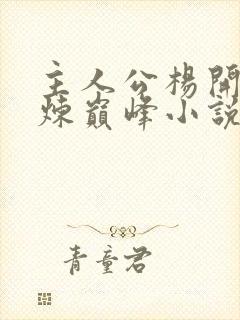 主人公楊開
煉巔峰小說
青童君